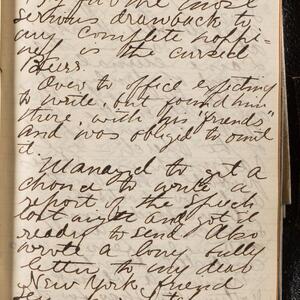 By far the most
serious drawback to
my complete happi-
ness is the cursed
Over to office expecting
to write, but found him
there, with his "friends"
and was obliged to omit
it.
Managed to get a
chance to write a
report of the speech
last night and got it
ready to send Also
wrote a long
letter to my dear
New York friend